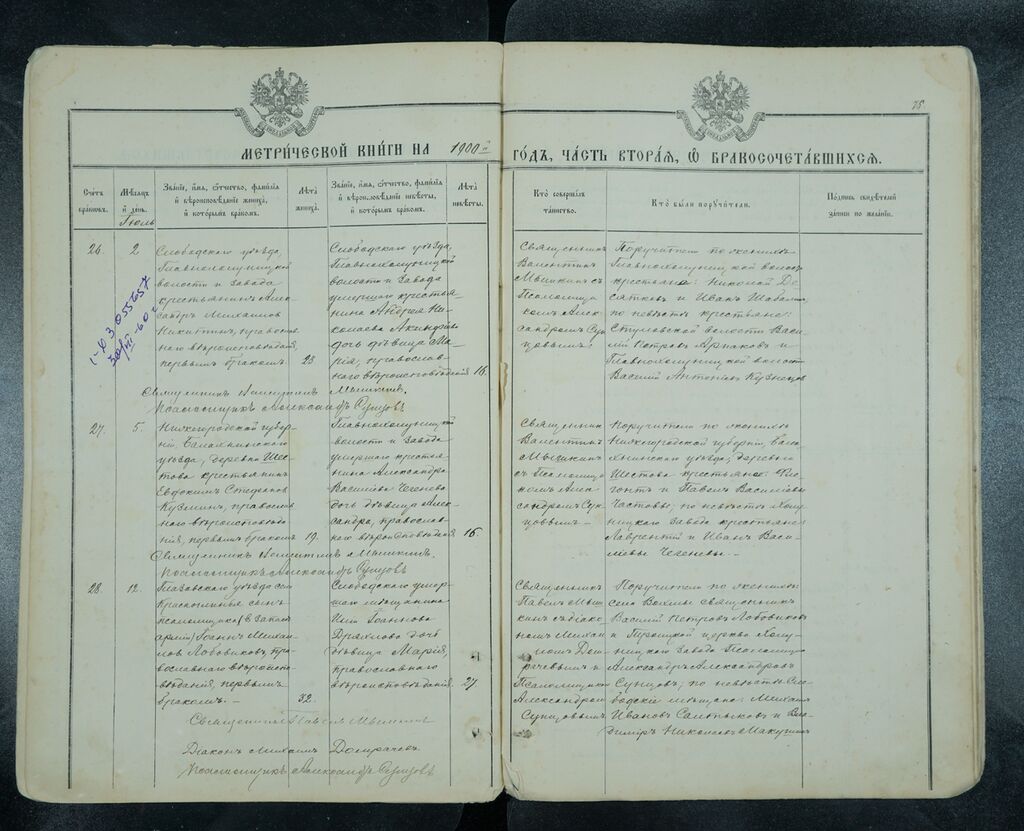 75
МЕТРИЧЕСКОЙ КНИГИ НА 1900й ГОДЪ, ЧАСТЬ ВТОРАЯ, Ѿ БРАКОСОЧЕТАВШИХСЯ.
Счетъ браковъ.
Мѣсяцъ и день.
Іюль
Званіе, имя, отчество, фамилія и вѣроисповѣданіе жениха, и которымъ бракомъ.
Лѣта жениха.
Званіе, имя, отчество, фамилія и вѣроисповѣданіе невѣсты, и которымъ бракомъ.
Лѣта невѣсты.
Кто совершалъ таинство.
Кто были поручители.
Подпись свидѣтелей записи по желанію.
26.
2
Слободскаго уѣзда,
Главнохолуницкой
волости и завода
крестьянинъ Алек-
сандръ Михаиловъ
Никитинъ, православ-
наго вѣроисповѣданія,
первымъ бракомъ
23
Слободскаго уѣзда,
Главнохолуницкой
волости и завода
умершаго крестья-
нина Андрея Ни-
колаева
дочь дѣвица Ма-
рія, православ-
наго вѣроисповѣданія
18.
Священникъ
Валентинъ
Мышкинъ съ
Псаломщи-
комъ Алек-
сандромъ Сун-
цовымъ
Поручители по женихѣ
Главнохолуницкой волости
крестьяне: Николай Де-
сятковъ и Иванъ
по невѣстѣ крестьяне:
волости Васи-
лій Петровъ и
Главнохолуницкой волости
Василій Антоновъ Кузнецовъ
Священникъ Валентинъ Мышкинъ.
Псаломщикъ Александръ Сунцовъ
27.
5.
Нижегородской губер-
ніи, Балахнинскаго
уѣзда, деревни Шес-
това крестьянинъ
Евдокимъ Стефановъ
Кузминъ, православ-
наго вѣроисповѣда-
нія, первымъ бракомъ
19.
Главнохолуницкой
волости и завода
умершаго крестья-
нина Александра
Васильева Чегенева
дочь дѣвица Алек-
сандра, православ-
наго вѣроисповѣданія
16.
Священникъ
Валентинъ
Мышкинъ
съ Псаломщи-
комъ Алек-
сандромъ Сун-
цовымъ
Поручители по женихѣ
Нижегородской губерніи, Бала-
хнинскаго уѣзда, деревни
Шестова крестьяне: Ле-
онтій и Павелъ Васильевы
по невѣстѣ Холу-
ницкаго завода крестьяне
Лаврентій и Иванъ Васи-
льевы Чегеневы.
Священникъ Валентинъ Мышкинъ.
Псаломщикъ Александръ Сунцовъ
28
12.
Глазовскаго уѣзда села
сынъ
псаломщика (въ запасѣ
арміи) Іоаннъ Михаи-
ловъ Лобовиковъ, пра-
вославнаго вѣроиспо-
вѣданія, первымъ
бракомъ.
32.
Слободскаго умер-
шаго мѣщанина
Іоаннова
дочь
дѣвица Марія,
православнаго
вѣроисповѣданія
27
Священникъ
Павелъ Мыш-
кинъ съ діако-
номъ Михаи-
ломъ Дом-
рачевымъ и
Псаломщикомъ
Александромъ
Сунцовымъ
Поручители по женихѣ:
села священникъ
Василій Петровъ Лобовиковъ
и церкви Холу-
ницкаго завода Псаломщикъ
Александръ Александровъ
Сунцовъ; по невѣстѣ Сло-
бодскіе мѣщане: Михаилъ
Ивановъ Салтыковъ и Вла-
диміръ Николаевъ
Священникъ Павелъ Мышкинъ
Діаконъ Михаилъ Домрачевъ
Псаломщикъ Александръ Сунцовъ